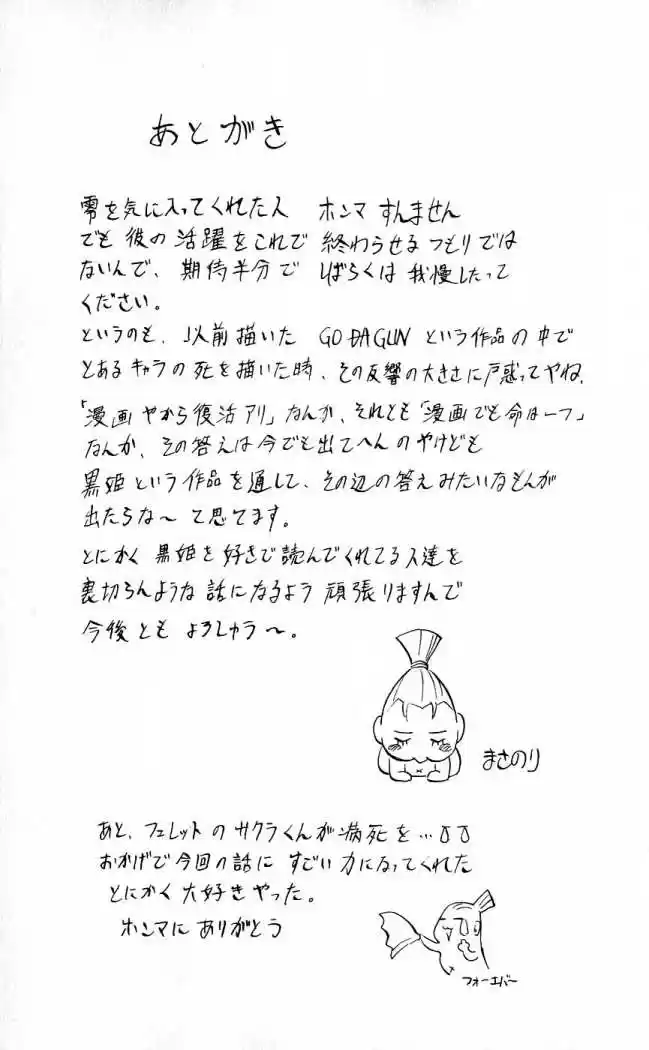 あとがき
零を気に入ってくれた人 ホンマ すんません
でも 彼の 活躍をこれで 終わらせる つもりでは
ないんで、期待半分で しばらくは 我慢したって
ください。
というのも、以前描いた GODAGUN という作品の中で
とあるキャラの死を描いた時、その反響の大きさに戸惑ってやね、
「漫画やから復活アリ」なんか、それとも「漫画でも命は一つ」
なんか、その答えは今でも出てへんのやけども
黒姫という作品を通して、その辺の答えみたいなもんが
出たらな〜て思てます。
とにかく 黒姫を好きで読んでくれてる人達を
裏切らんような話になるよう 頑張りますんで
今後とも よろしゅう〜。
まさのり
あと、フェレットのサクラくんが病死を…
おかげで今回の話に すごい力になってくれた
とにかく大好きやった。
ホンマに ありがとう
フォーエバー